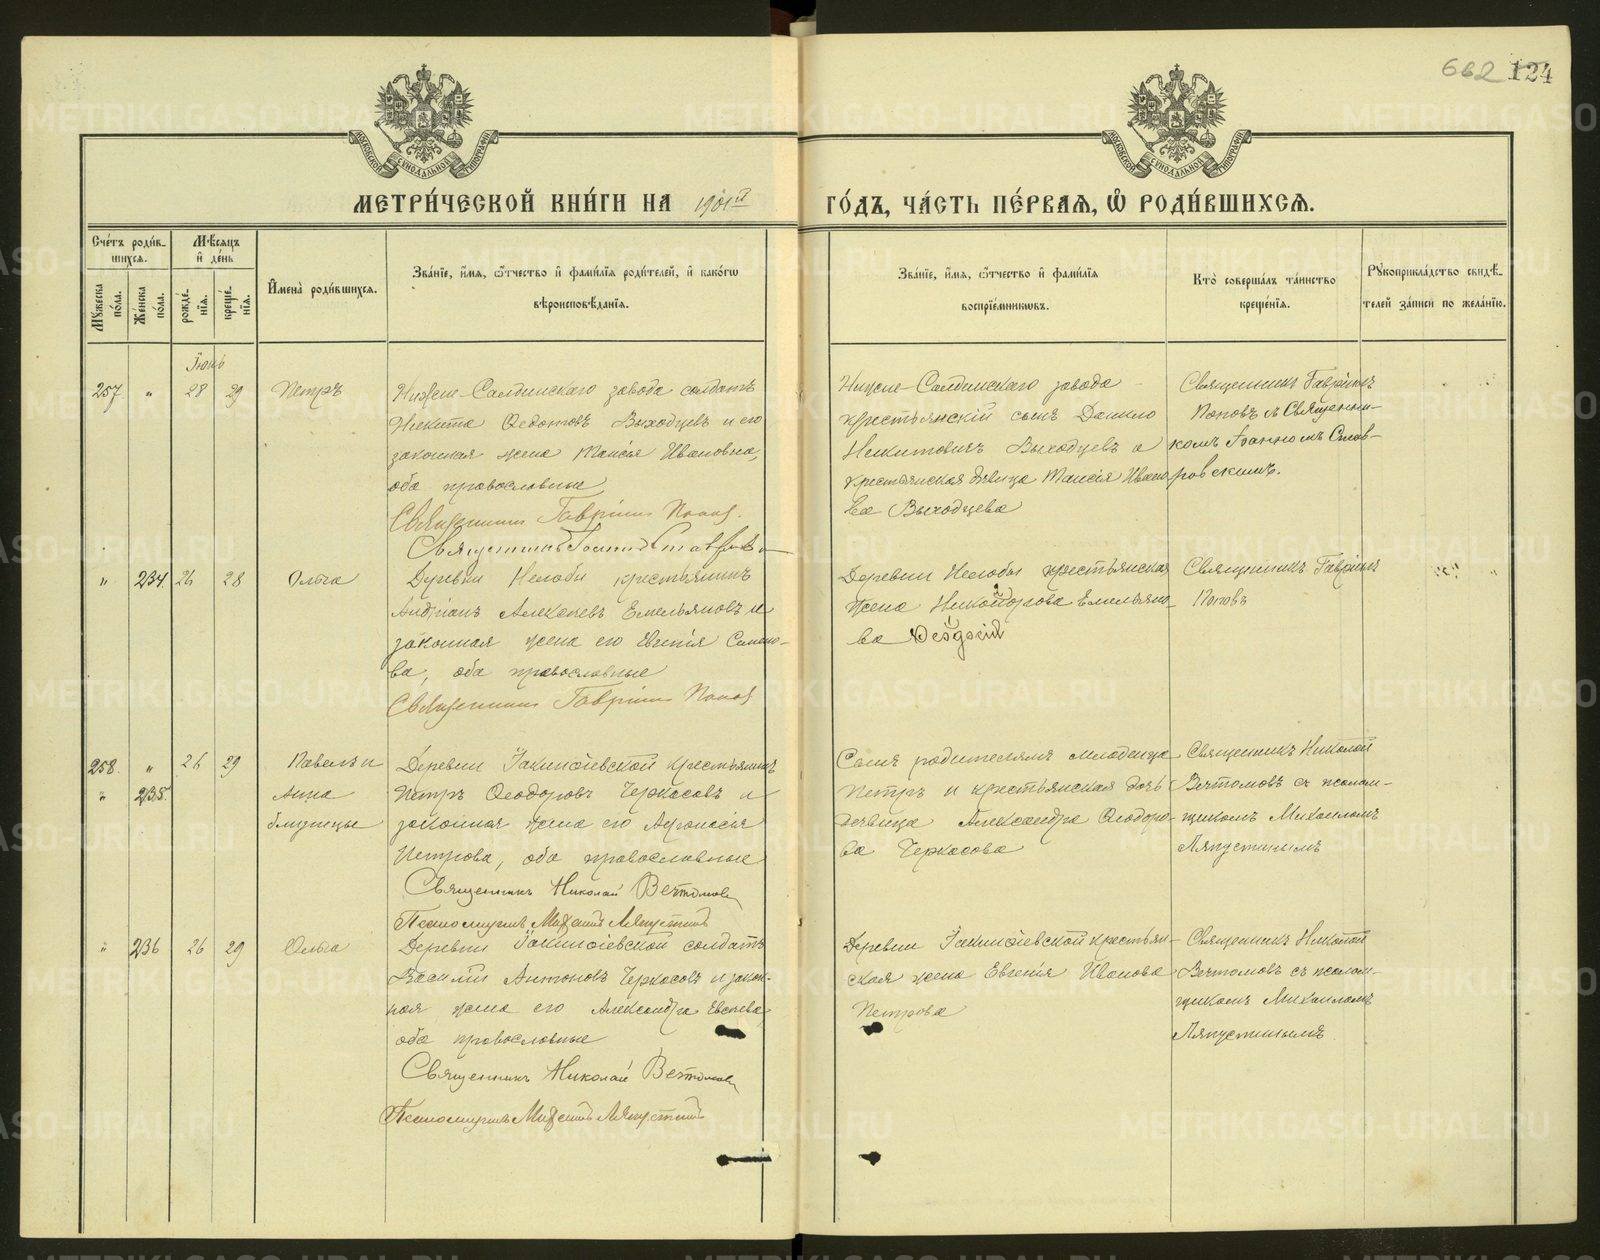 662 124
МОСКОВСКОЙ СѴНОДАЛЬНОЙ ТИПОГРАФІИ
МОСКОВСКОЙ СѴНОДАЛЬНОЙ ТИПОГРАФІИ
МЕТРИ́ЧЕСКОЙ КНИ́ГИ НА 1901й ГО́ДЪ, ЧА́СТЬ ПЕ́РВАЯ, Ѡ РОДИ́ВШИХСѦ.
Сче́тъ роди́в-
шихсѧ.
Мѣ́сѧцъ
и҆ де́нь
Мꙋ́жеска по́ла.
Же́нска по́ла.
рожде́-
нїѧ.
креще́-
нїѧ.
И҆мена̀ роди́вшихсѧ.
Зва́нїе, и҆́мѧ, ѻ҆́тчество и҆ фами́лїѧ роди́телей, и҆ како́гѡ
вѣроисповѣ́данїѧ.
Зва́нїе, и҆́мѧ, ѻ҆́тчество и҆ фами́лїѧ
воспрїе́мникѡвъ.
Кто̀ соверша́лъ та́инство
креще́нїѧ.
Рꙋкоприкла́дство свидѣ́-
телей за́писи по жела́нїю.
Іюнь
257 " 28 29 Петръ
Нижне-Салдинскаго завода солдатъ
Никита Ѳедотовъ Выходцевъ и его
законная жена Таисія Ивановна,
оба православные
Священникъ Гавріилъ Поповъ
Священникъ Іоаннъ
Нижне-Салдинскаго завода
крестьянскій сынъ Данило
Никитовичъ Выходцевъ и
крестьянская дѣвица Таисія Ивано-
ва Выходцева
Священникъ Гавріилъ
Поповъ съ Священни-
комъ Іоанномъ Став-
ровскимъ.
" 234 26 28 Ольга
Деревни Нелобы крестьянинъ
Андріанъ Алексѣевъ Емельяновъ и
законная жена его Евгенія Семено-
ва, оба православные
Священникъ Гавріилъ Поповъ
Деревни Нелобы крестьянская
жена Никонорова Емельяно-
ва
Священникъ Гавріилъ
Поповъ
258 " 26 29 Павелъ и
" 235 Анна
близнецы
Деревни Іакинѳіевской крестьянинъ
Петръ Ѳеодоровъ Черкасовъ и
законная жена его Аѳонасія
Петрова, оба православные
Священникъ Николай Вечтомовъ
Псаломщикъ Михаилъ Ляпустинъ
Сынъ родителямъ младенца
Петръ и крестьянская дочь
дѣвица Александра Ѳеодоро-
ва Черкасова
Священникъ Николай
Вечтомовъ съ псалом-
щикомъ Михаиломъ
Ляпустинымъ
" 236 26 29 Ольга
Деревни Іакинѳіевской солдатъ
Василій Антоновъ Черкасовъ и закон-
ная жена его Александра Евсѣева,
оба православные
Священникъ Николай Вечтомовъ
Псаломщикъ Михаилъ Ляпустинъ
Деревни Іакинѳіевской крестьян-
ская жена Евгенія Иванова
Петрова
Священникъ Николай
Вечтомовъ съ псалом-
щикомъ Михаиломъ
Ляпустинымъ